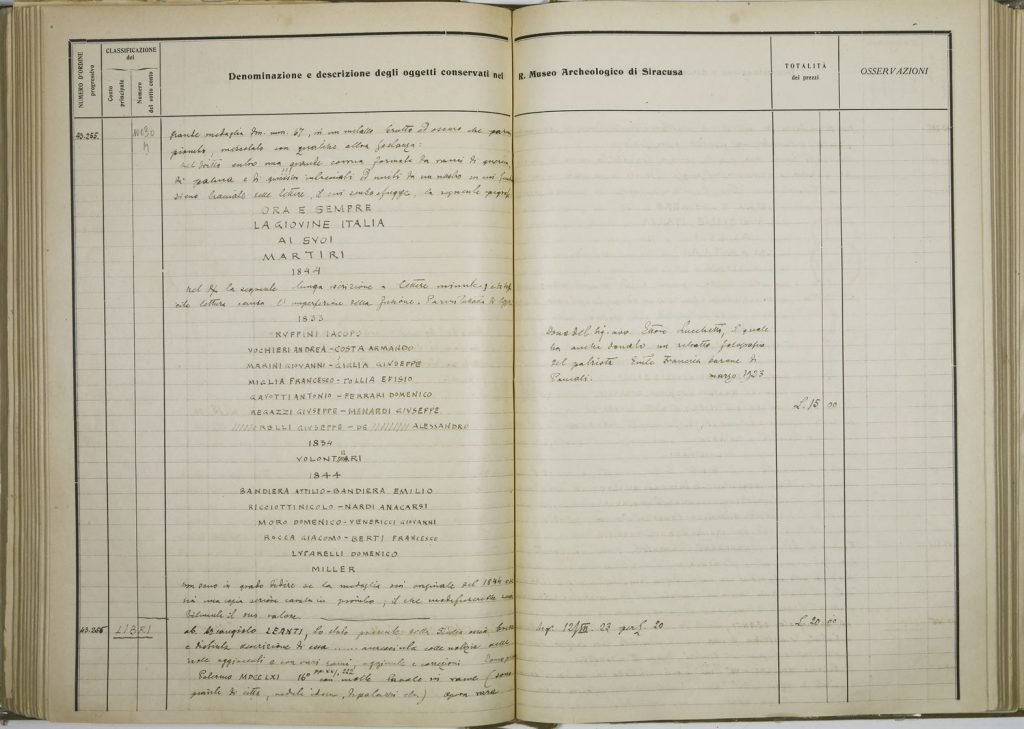 NUMERO D'ORDINE
progressivo
CLASSIFICAZIONE
del
Conto
principale
Numero
del sotto conto
Denominazione e descrizione degli oggetti conservati nel R. Museo Archeologico di Siracusa
TOTALITÀ
dei prezzi
OSSERVAZIONI
43.265.
grande medaglia dm. mm. 67, in un metallo brutto ed oscuro che pare
piombo, mescolato con qualche altra sostanza:
nel dritto entro una grande corona formata da rami di quercia
di palma e di intrecciati ed uniti da un nastro in cui
tracciate delle lettere, il cui senso sfugge, la seguente
ORA E SEMPRE
LA GIOVINE ITALIA
AI SVOI
MARTIRI
1844
nel la seguente lunga iscrizione a lettere minute e di
lettura causa l' imperfezione della fusione.
1833
RVFFINI IACOPO
VOCHIERI ANDREA - COSTA ARMANDO
MARINI GIOVANNI - GIULIA GIVSEPPE
MIGLIA FRANCESCO - TOLLIA EFISIO
GAVOTTI ANTONIO - FERRARI DOMENICO
REGAZZI GIVSEPPE - MENARDI GIVSEPPE
///// RELLI GIVSEPPE - DE ///////// ALESSANDRO
1834
VOLONTARI
1844
BANDIERA ATTILIO - BANDIERA EMILIO
RICCIOTTI NICOLO - NARDI ANACARSI
MORO DOMENICO - VENERICCI GIOVANNI
ROCCA GIACOMO - BERTI FRANCESCO
LVPARELLI DOMENICO
MILLER
non sono in grado di dire se la medaglia sia originale del 1844 o
sia una copia seriore cavata in piombo; il che modificherebbe
il suo valore.
Dono del sig. avv. Ettore Lucchetti, il quale
ha anche donato un ritratto fotografico
del patriota Emilio Francica barone di
Pancali. marzo 1923
L. 15 00
43.266
LIBRI
ab. Arcangiolo LEANTI, Lo stato presente della Sicilia ossia breve
e distinta descrizione di essa ...... accresciuta colle notizie delle
isole aggiacenti e con vari rami, aggiunte e correzioni
Palermo MDCCLXI 16° con molte tavole in rame (
di città, vedute, di palazzi etc.) opera rara
Acq. 12/VII. 23 per L. 20
L. 20 00